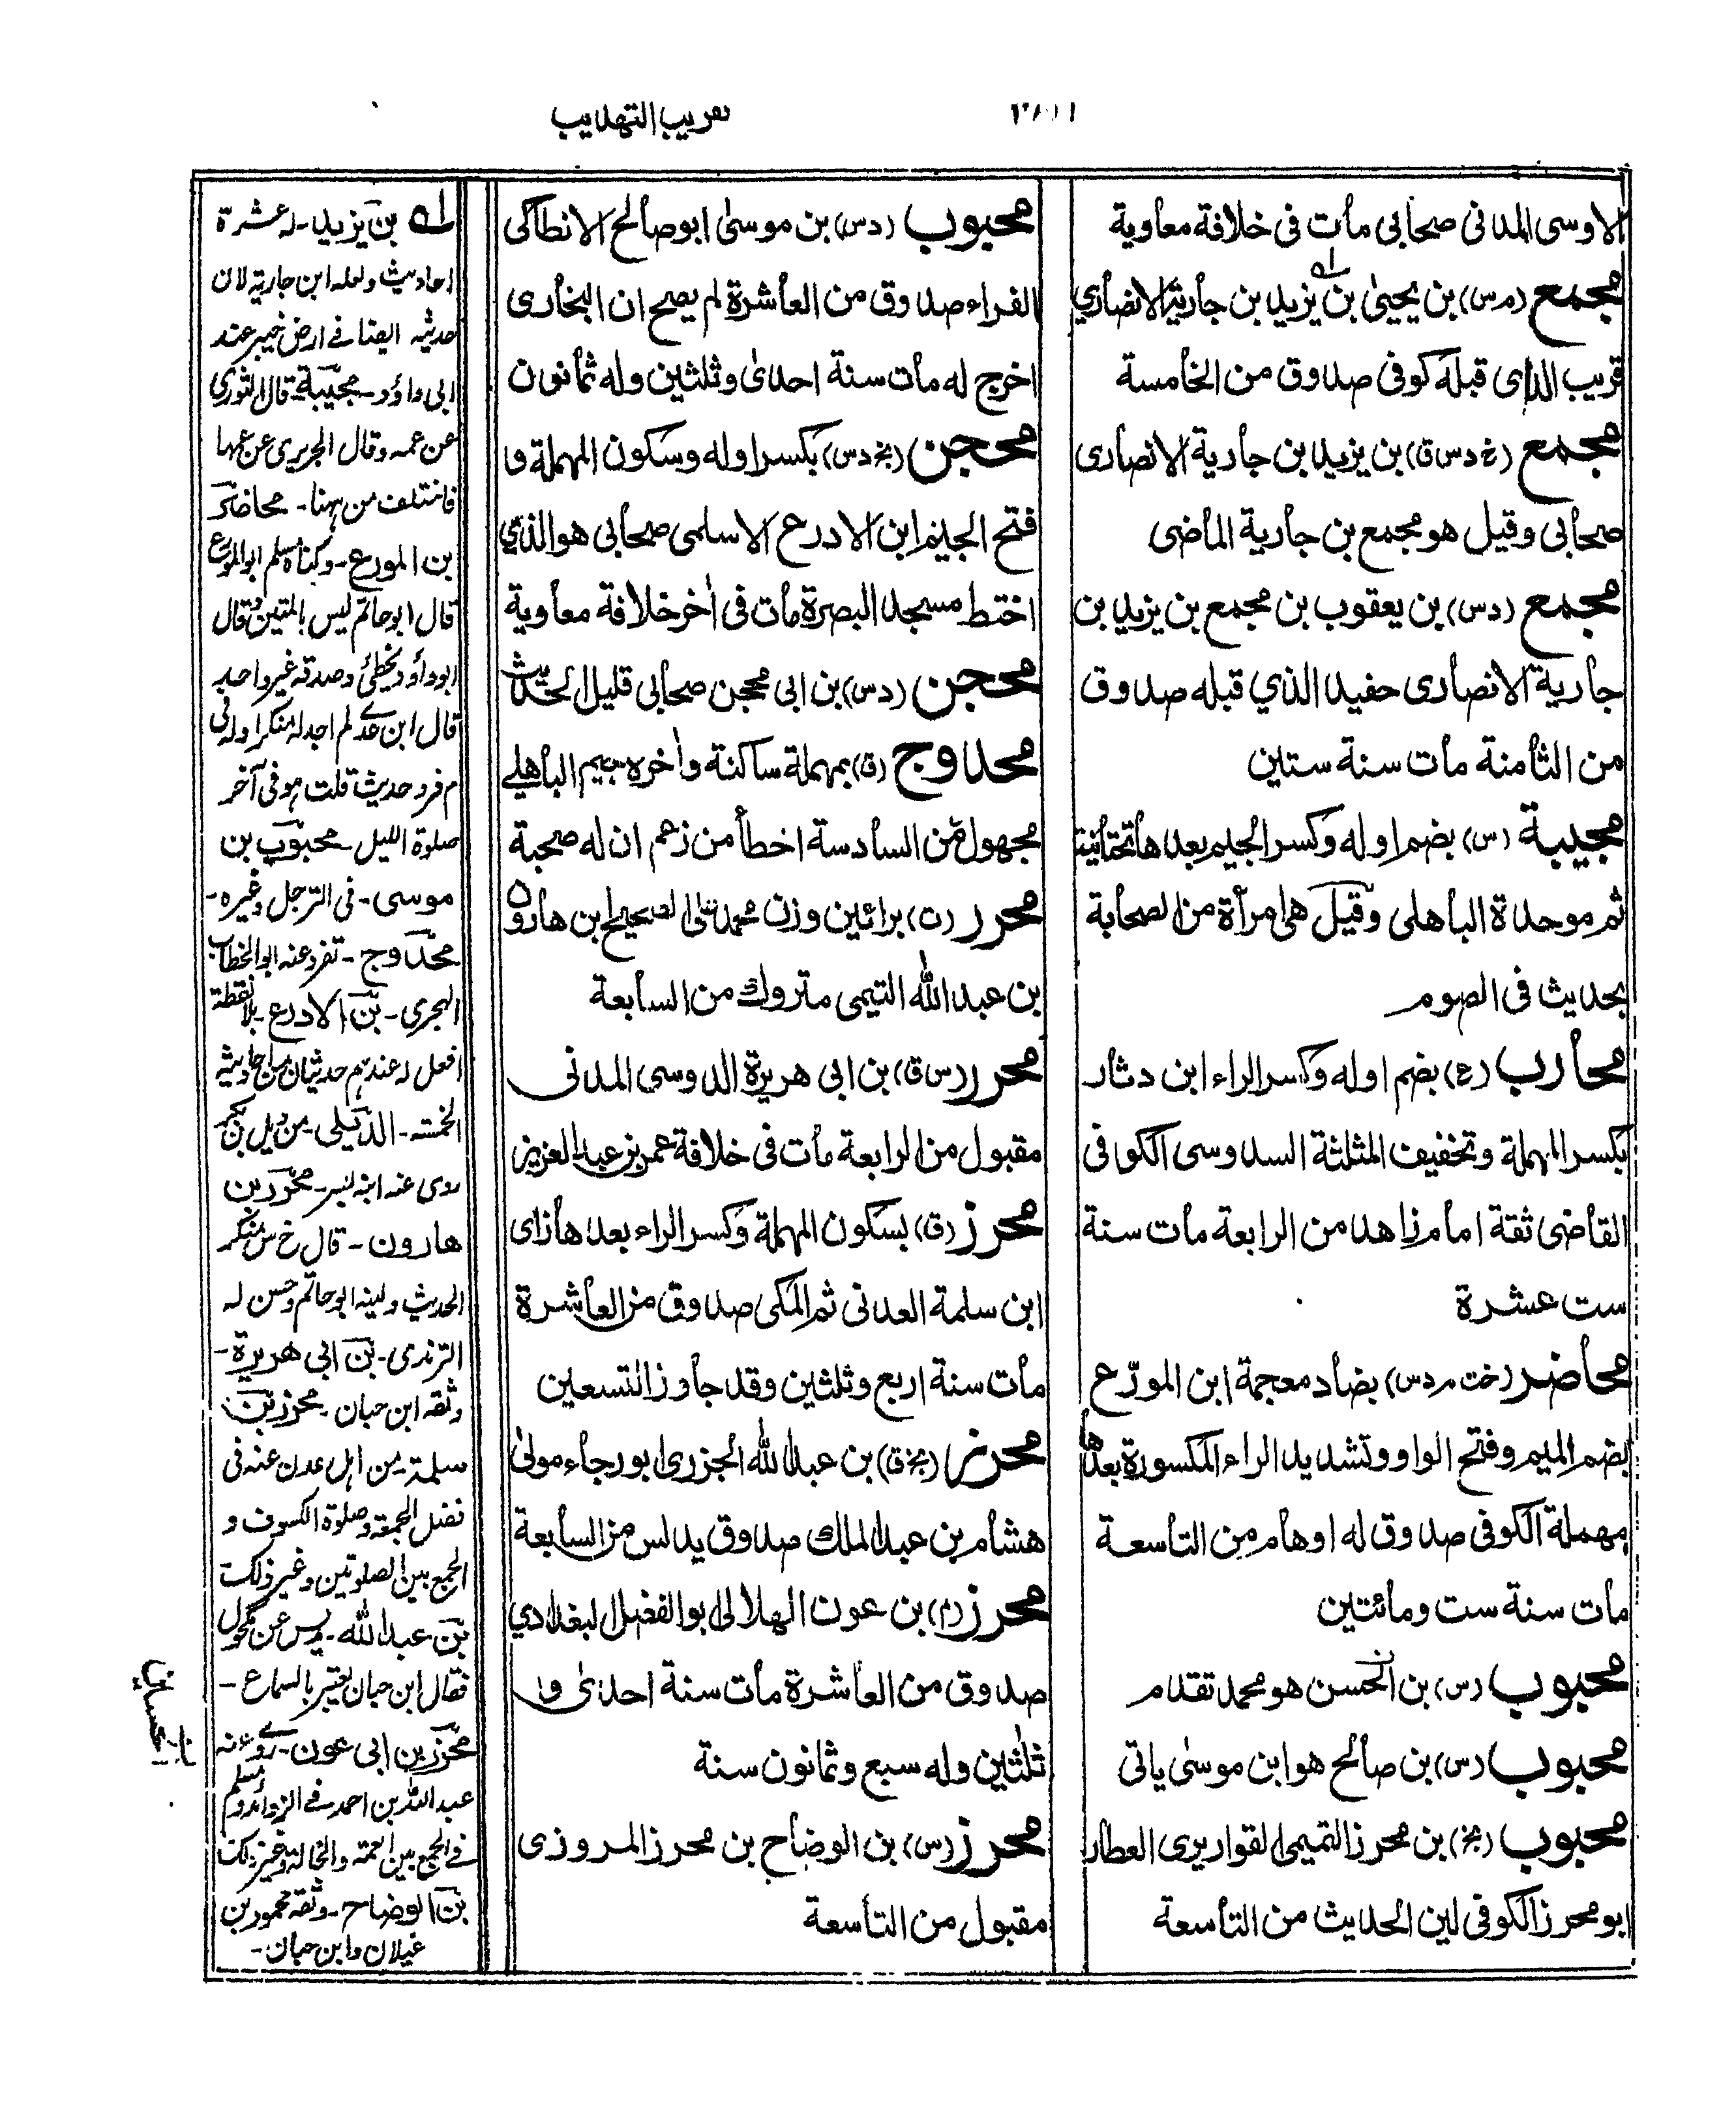 تقريب التهذيب
الاوسى المدنى صحابى مات فى خلافة معاوية
مجمع (م س) بن يحيىٰ بن يزيد بن جارية الانصاري
قريب الذى قبله كوفى صدوق من الخامسة
مجمع (خ د س ق) بن يزيد بن جارية الانصارى
صحابى وقيل هو مجمع بن جارية الماضى
مجمع (د س) بن يعقوب بن مجمع بن يزيد بن
جارية الانصارى حفيد الذي قبله صدوق
من الثامنة مات سنة ستين
مجيبة (س) بضم اوله وكسر الجيم بعدها تحتانية
ثم موحدة الباهلى وقيل هى امرأة من الصحابة
بحديث فى الصوم
محارب (ع) بضم اوله وكسر الراء ابن دثار
بكسر المهملة وتخفيف المثلثة السدوسى الكوفى
القاضى ثقة امام زاهد من الرابعة مات سنة
ست عشرة
محاضر (خت م د س) بضاد معجمة ابن المورّع
بضم الميم وفتح الواو وتشديد الراء المكسورة بعدها
مهملة الكوفى صدوق له اوهام من التاسعة
مات سنة ست ومائتين
محبوب (س) بن الحسن هو محمد تقدم
محبوب (د س) بن صالح هو ابن موسىٰ ياتى
محبوب (بخ) بن محرز التميمى القواريرى العطار
ابو محرز الكوفى لين الحديث من التاسعة
محبوب (د س) بن موسىٰ ابو صالح الانطاكى
الفراء صدوق من العاشرة لم يصح ان البخارى
اخرج له مات سنة احدىٰ وثلثين وله ثمانون
محجن (بخ د س) بكسر اوله وسكون المهملة و
فتح الجيم ابن الادرع الاسلمى صحابى هو الذي
اختط مسجد البصرة مات فى اٰخر خلافة معاوية
محجن (د س) بن ابى محجن صحابى قليل الحديث
محدوج (ق) بمهملة ساكنة واٰخره جيم الباهلي
مجهول من السادسة اخطأ من زعم ان له صحبة
محرر (ت) برائين وزن محمد علىٰ الصحيح ابن هارون
بن عبد الله التيمى متروك من السابعة
محرر (س ق) بن ابى هريرة الدوسى المدنى
مقبول من الرابعة مات فى خلافة عمر بن عبد العزيز
محرز (ق) بسكون المهملة وكسر الراء بعدها زاى
ابن سلمة العدنى ثم المكى صدوق من العاشرة
مات سنة اربع وثلثين وقد جاوز التسعين
محرز (بخ ق) بن عبد الله الجزرى ابو رجاء مولىٰ
هشام بن عبد الملك صدوق يدلس من السابعة
محرز (م) بن عون الهلالى ابو الفضل البغدادي
صدوق من العاشرة مات سنة احدىٰ و
ثلٰثين وله سبع وثمانون سنة
محرز (س) بن الوضاح بن محرز المروزى
مقبول من التاسعة
بن يزيد - له عشرة
احاديث ولعله ابن جارية لان
حديثه ايضا فى ارض خيبر عند
ابى داؤد - مجيبة - قال الثوري
عن عمه وقال الجريرى عن عمها
فاختلف من هنا - محاضر
بن المورع - وكناه مسلم ابو المورع
قال ابو حاتم ليس بالمتين وقال
ابو داؤد يخطئ وصدقه غير واحد
قال ابن عدے لم اجد له منكرا وله فى
م فرد حديث قلت هو فى آخر
صلوة الليل - محبوب بن
موسى - فى الترجل وغيره -
محدوج - تفرد عنه ابو الخطاب
الهجرى - بن الادرع - بلا نقطة
الخمسة - الديلى - من
روى عنه ابنه بسر - محرر بن
هارون - قال خ س منكر
الحديث ولينه ابو حاتم وحسن له
الترمذى - بن ابى هريرة -
وثقه ابن حبان - محرز بن
سلمة - من اهل عدن عنه فى
فضل الجمعة وصلوة الكسوف و
الجمع بين الصلوتين وغير ذلك
بن عبد الله - يدلس عن مكحول
فقال ابن حبان يعتبر بالسماع -
محرز بن ابى عون - روے عنه
عبد الله بن احمد فے الزوائد ومسلم
فے الجمع بين العمة والخالة وغير ذلك
بن الوضاح - وثقه محمود بن
غيلان وابن حبان -